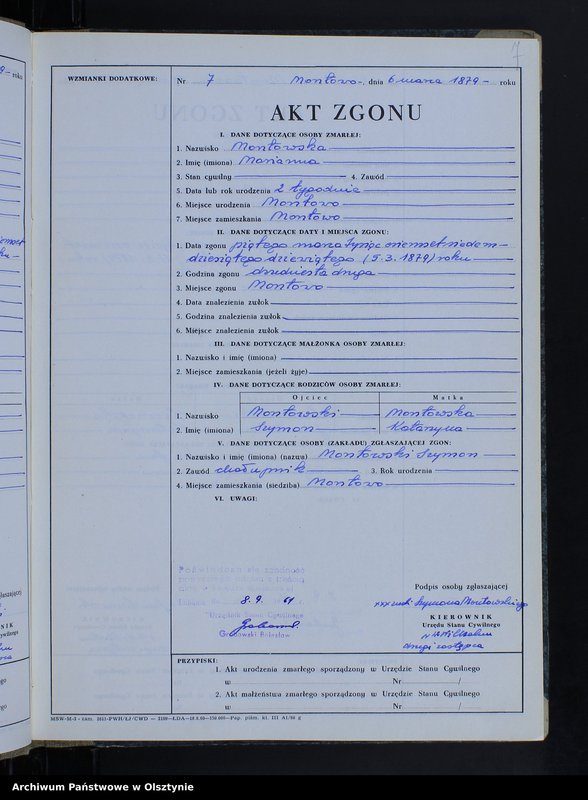 7
WZMIANKI DODATKOWE:
Nr 7 Montowo, dnia 6 marca 1879 roku
AKT ZGONU
I. DANE DOTYCZĄCE OSOBY ZMARŁEJ:
1. Nazwisko Montowska
2. Imię (imiona) Marianna
3. Stan cywilny 4. Zawód
5. Data lub rok urodzenia 2 tygodnie
6. Miejsce urodzenia Montowo
7. Miejsce zamieszkania Montowo
II. DANE DOTYCZĄCE DATY I MIEJSCA ZGONU:
1. Data zgonu piątego marca tysiąc osiemset siedem-
dziesiątego dziewiątego (5.3.1879) roku
2. Godzina zgonu dwudziesta druga
3. Miejsce zgonu Montowo
4. Data znalezienia zwłok
5. Godzina znalezienia zwłok
6. Miejsce znalezienia zwłok
III. DANE DOTYCZĄCE MAŁŻONKA OSOBY ZMARŁEJ:
1. Nazwisko i imię (imiona)
2. Miejsce zamieszkania (jeżeli żyje)
IV. DANE DOTYCZĄCE RODZICÓW OSOBY ZMARŁEJ:
Ojciec Matka
1. Nazwisko Montowski Montowska
2. Imię (imiona) Szymon Katarzyna
V. DANE DOTYCZĄCE OSOBY (ZAKŁADU) ZGŁASZAJĄCEJ ZGON:
1. Nazwisko i imię (imiona) (nazwa) Montowski Szymon
2. Zawód chałupnik 3. Rok urodzenia
4. Miejsce zamieszkania (siedziba) Montowo
VI. UWAGI:
Poświadcza się zgodność
8. 9. 61 r.
Urzędnik Stanu Cywilnego
Grabowski
Podpis osoby zgłaszającej
xxx Szymona Montowskiego
KIEROWNIK
Urzędu Stanu Cywilnego
drugi zastępca
PRZYPISKI:
1. Akt urodzenia zmarłego sporządzony w Urzędzie Stanu Cywilnego
w Nr /
2. Akt małżeństwa zmarłego sporządzony w Urzędzie Stanu Cywilnego
w Nr /
Archiwum Państwowe w Olsztynie